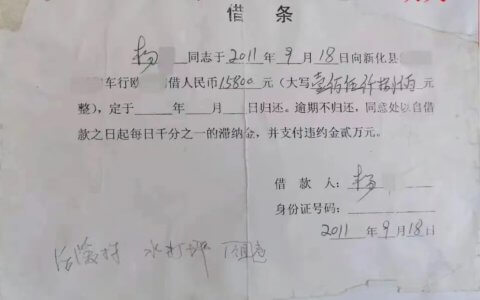 借条
杨 同志于2011年9月18日向新化县
车行欧 借人民币15800元（大写壹 伍仟捌佰元
整），定于 年 月 日归还。逾期不归还，同意处以自借
款之日起每日千分之一的滞纳金，并支付违约金贰万元。
借款人：杨
身份证号码：
2011年9月18日
水打坪